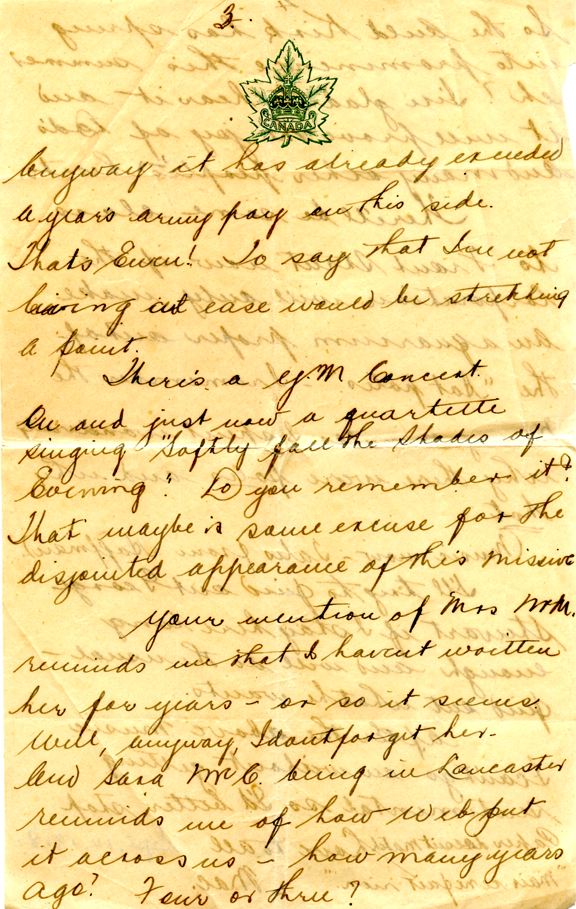 3.
CANADA
Anyway it has already exceeded
a years army pay on this side.
Thats Ewen! To say that I'm not
living at ease would be stretching
a point.
There's a Y.M Concert
On and just now a quartette
singing "Softly fall the Shades of
Evening". Do you remember it?
That maybe is some excuse for the
disjointed appearance of this missive
Your mention of Mrs
reminds me that I havent written
her for years - or so it seems.
Well, anyway, I dont forget her.
And Sara McC. being in Lancaster
reminds me of how Web put
it across us - how many years
ago? Four or three?